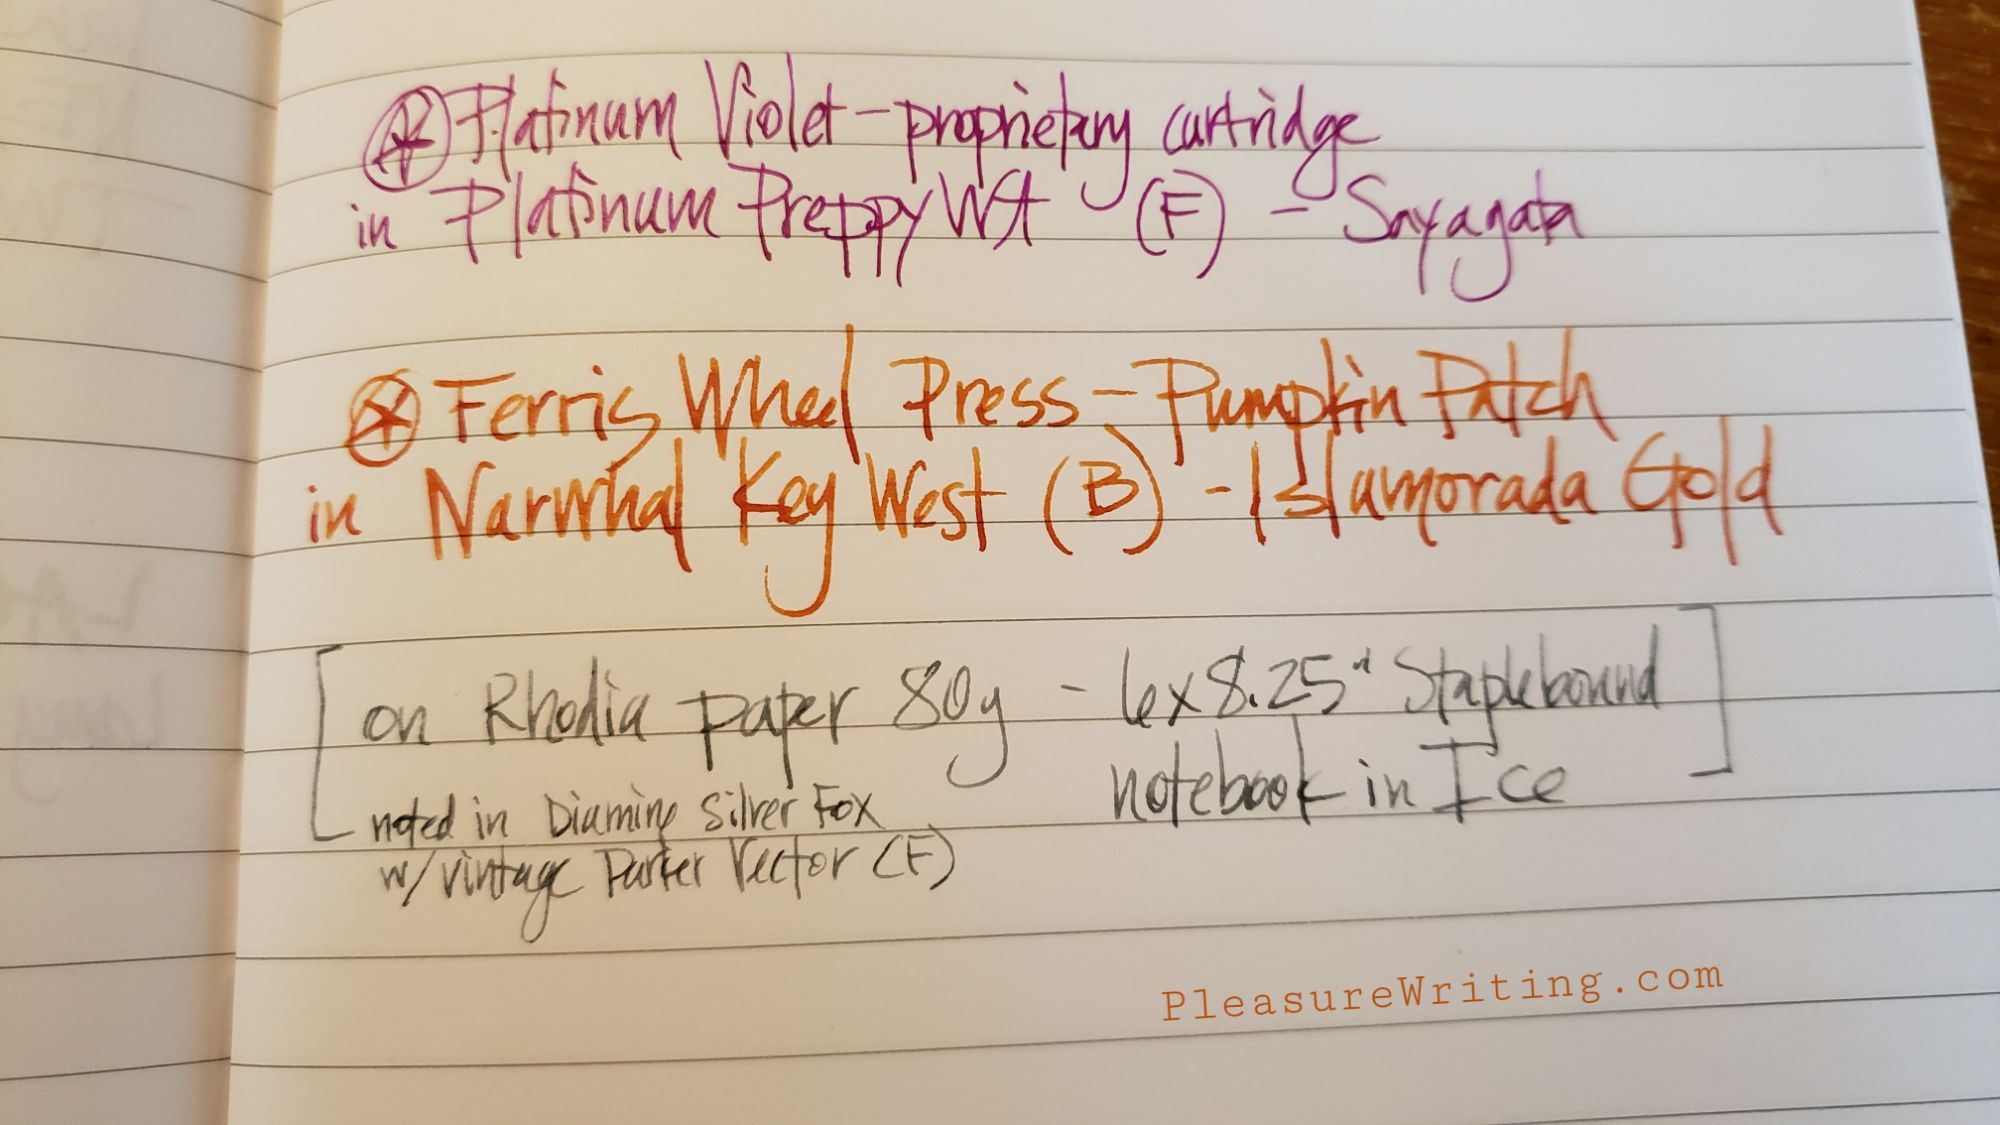 ⊛ Platinum Violet – proprietary cartridge
in Platinum Preppy WA (F) – Sayagata
⊛ Ferris Wheel Press – Pumpkin Patch
in Narwhal Key West (B) – Islamorada Gold
[on Rhodia paper 80g – 6x8.25" Staplebound
notebook in Ice]
noted in Diamine Silver Fox
w/ vintage Parker Vector (F)
PleasureWriting.com